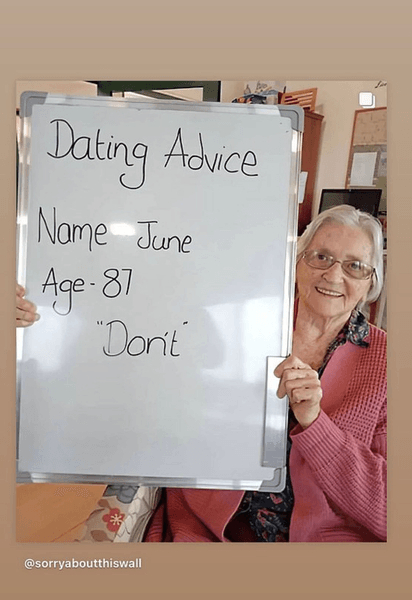 Dating Advice
Name June
Age - 87
"Don't"
@sorryaboutthiswall